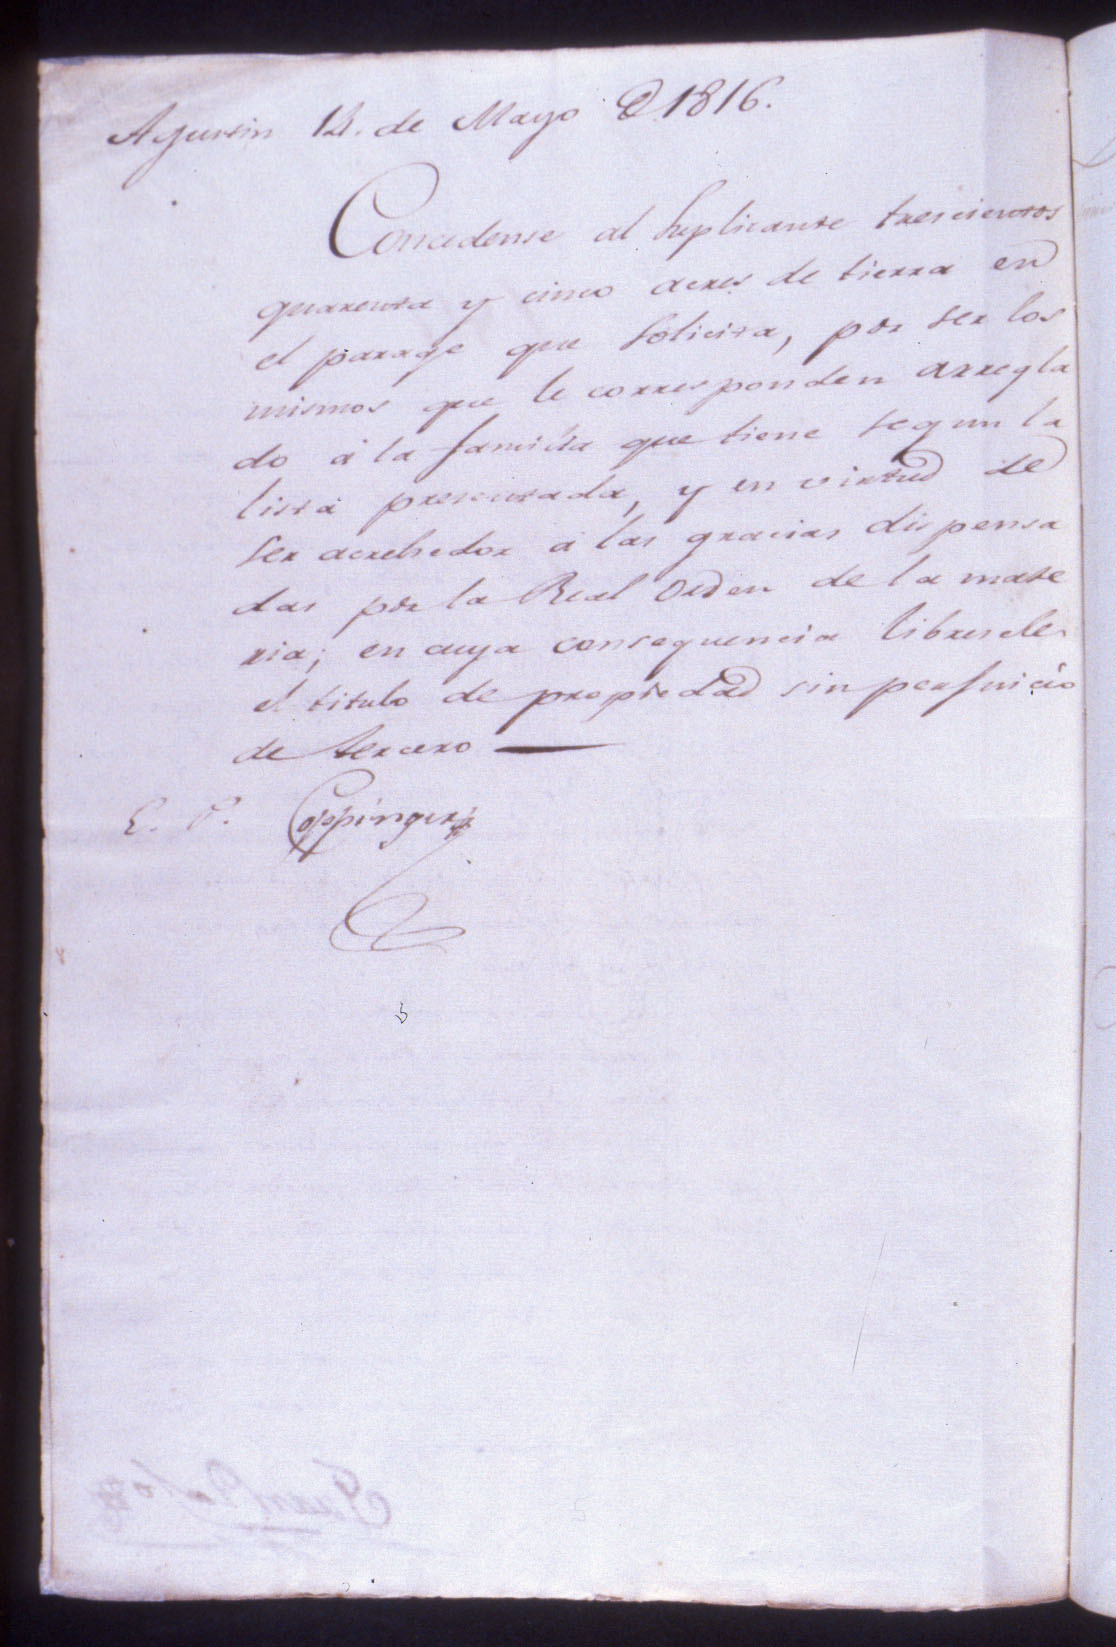 Agustin 12. de Mayo de 1816.
Concedense al suplicante trescientos
quarenta y cinco acres de tierra en
el parage que solicita, por ser los
mismos que le corresponden arregla
do á la familia que tiene segun la
lista presentada, y en virtud de
ser acrehedor á las gracias dispensa
das por la Real Orden de la mate
ria; en cuya consequencia libresele
el titulo de propiedad sin perjuicio
de tercero
Coppinger